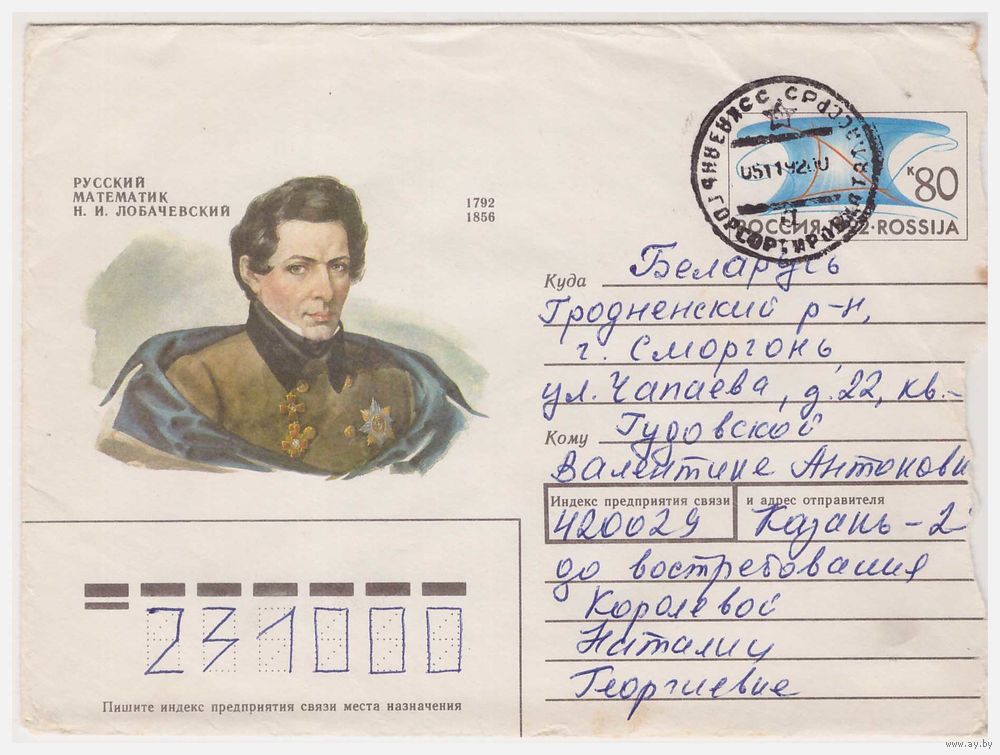 РУССКИЙ
МАТЕМАТИК
Н. И. ЛОБАЧЕВСКИЙ
1792
1856
к80
РОССИЯ ROSSIJA
051192
ГОРСОРТИРОВКА
Куда Беларусь
Гродненский р-н,
г. Сморгонь
ул. Чапаева, д. 22, кв.-
Кому Гудовской
Валентине Антоновн
Индекс предприятия связи и адрес отправителя
420029 Казань-2
до востребования
Королевой
Наталии
Георгиевне
231000
Пишите индекс предприятия связи места назначения
www.ay.by